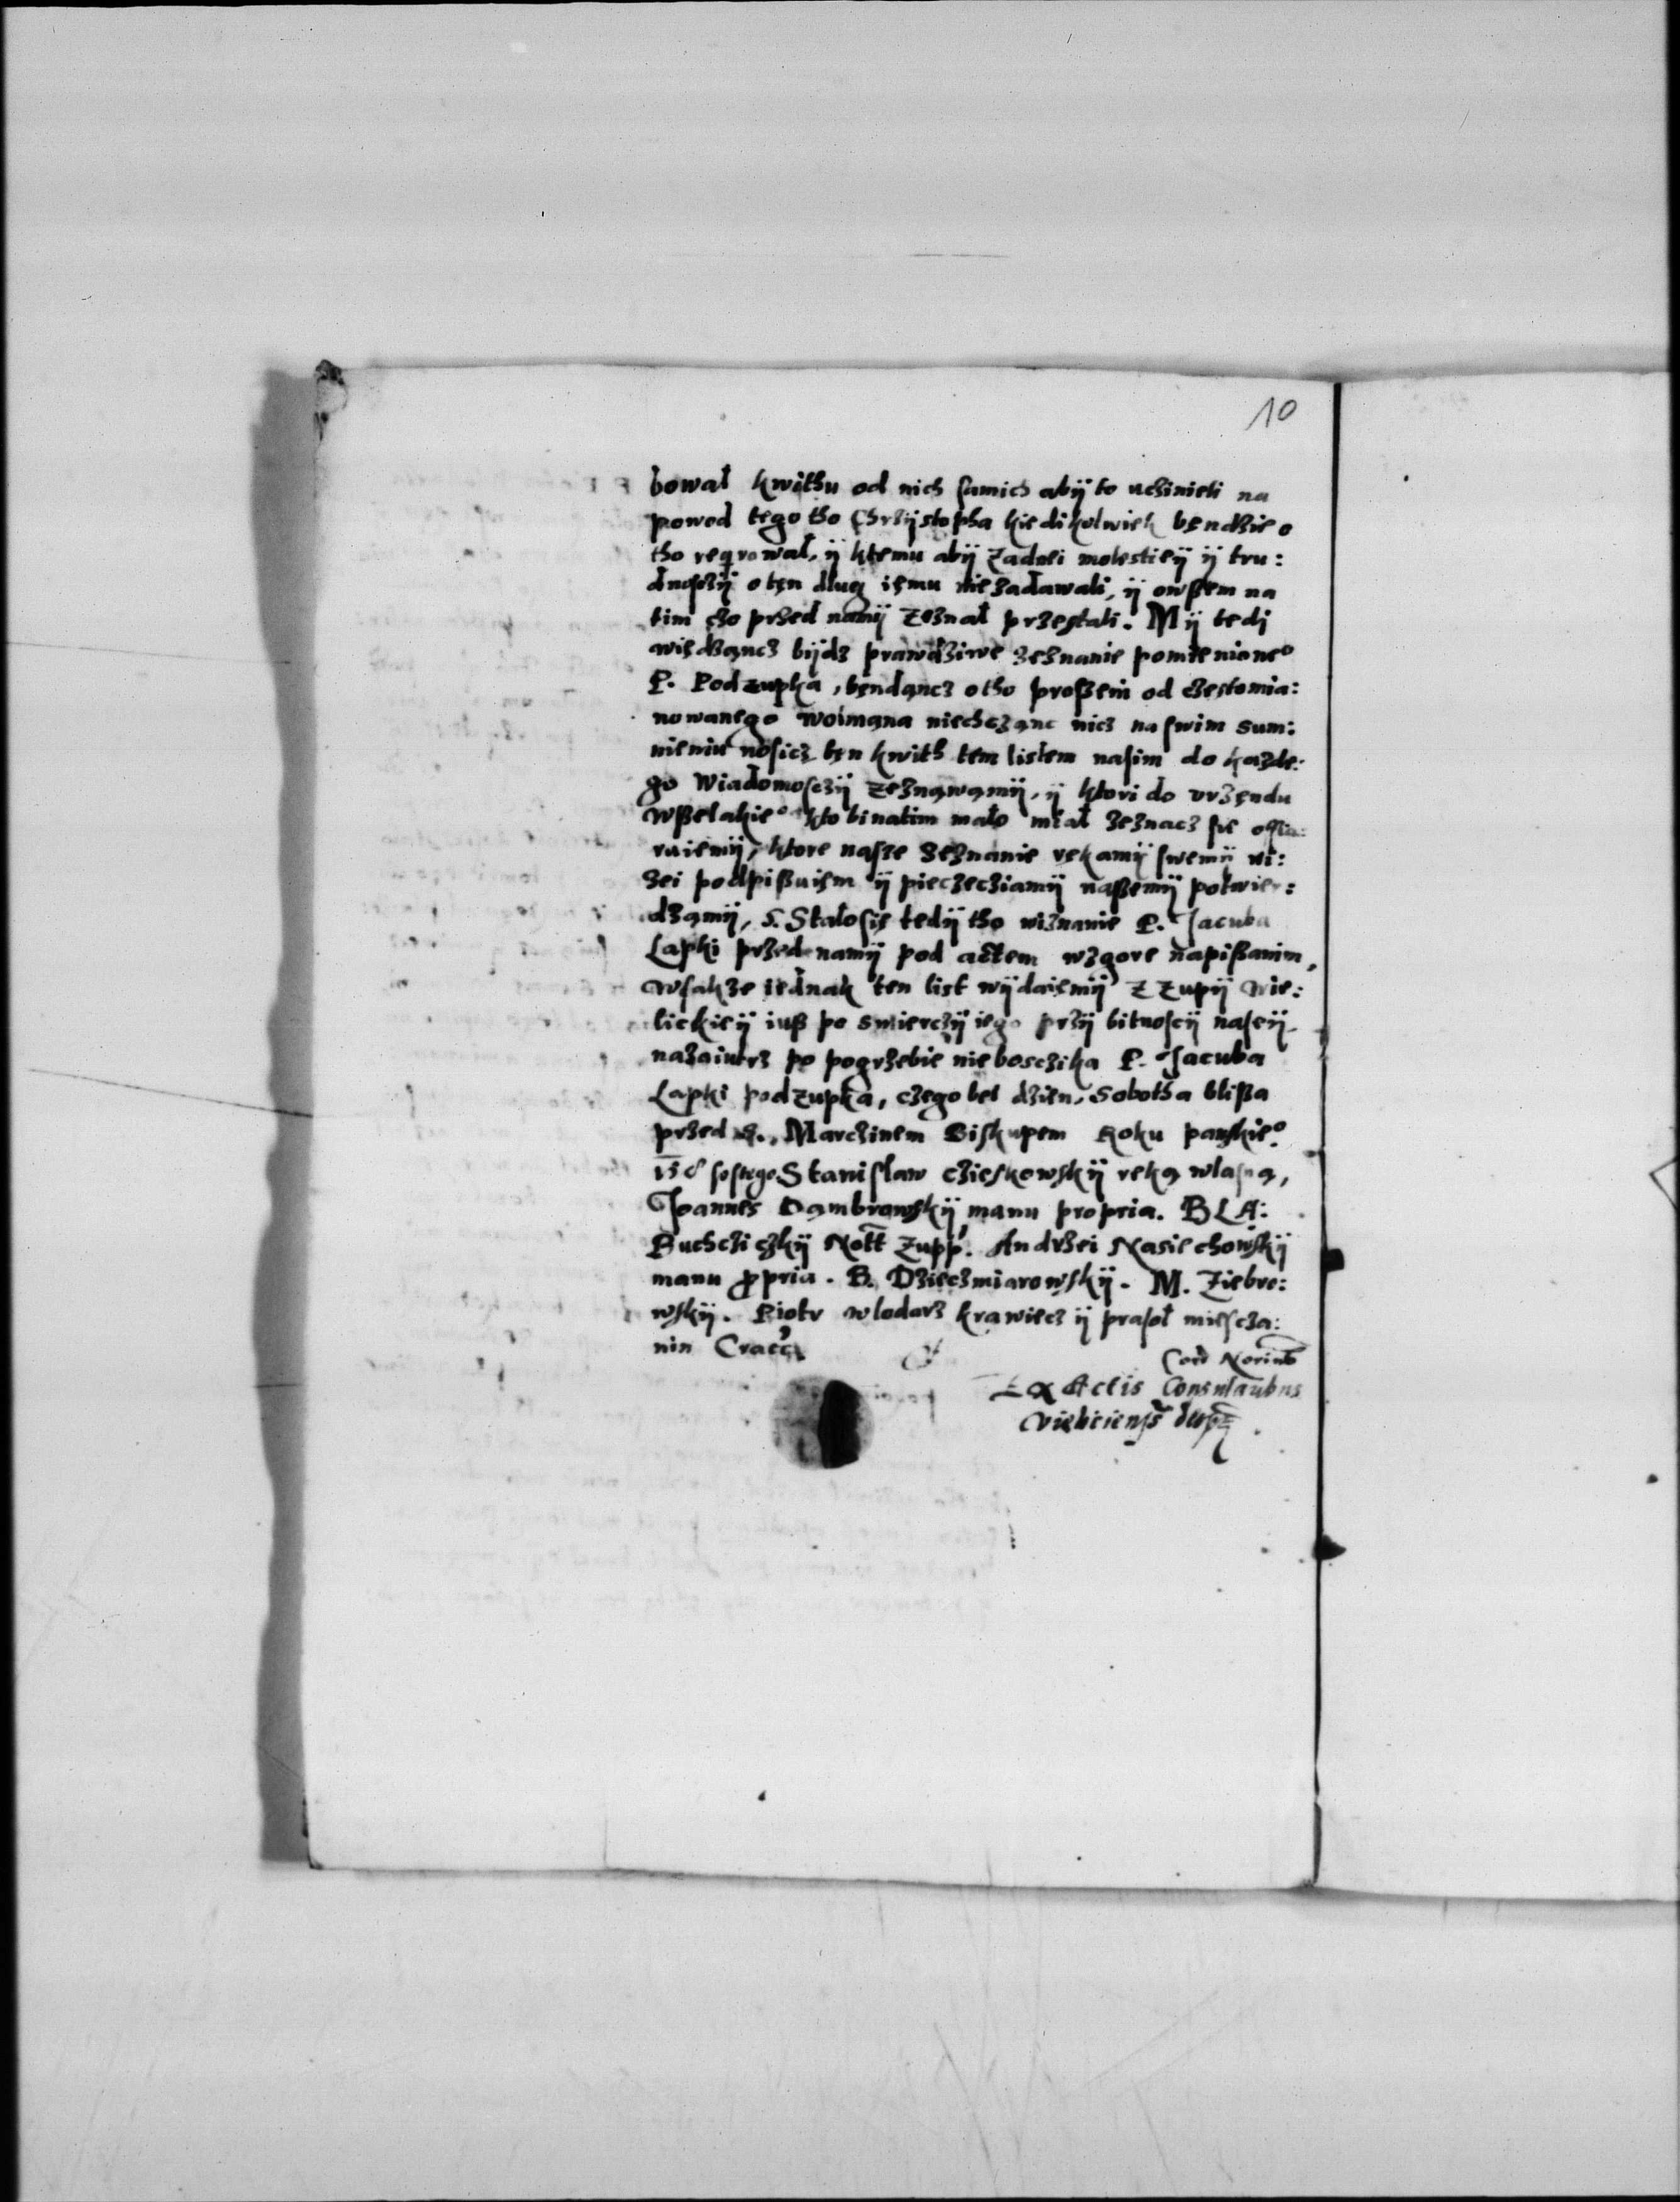 10
bował kwithu od nich samich abÿ to uczinieli na
powod tego tho Chrzÿstopha kiedikolwiek bendzie o
tho reqrował, ÿ ktemu abÿ zadnei molestieÿ ÿ tru:
dnosczÿ o ten dlug iemu nie zadawali, ÿ owßem na
tim czo przed namÿ zeznał przestali. Mÿ tedj
wiedzancz bÿdz prawdziwe zeznanie pomienione°
P. Podzupka, bendancz otho proßem od czestomia:
nowanego woimana niechczanc nicz na swim sum:
nieniu nosicz ten kwith tem listem nasim do kazde:
go wiadomosczÿ zeznawamÿ, ÿ ktori do vrzendu
wßelakie° kto bi natim mało miał zeznacz sie ofia:
ruiemÿ, ktore nasze zeznanie rekamÿ swemÿ ni:
zei podpißuiem ÿ pieczecziamÿ naßemÿ potwier:
dzamÿ, S. Stałosie tedÿ tho wiznanie P. Jacuba
Lapki przed namÿ pod actem wzgore napißanim,
wsakze iednak ten list wÿdaiemÿ z zupÿ wie:
lickieÿ iuß po smierczÿ iego przÿ bitnosciÿ naseÿ
nazaiutrz po pogrzebie niebosczika P. Jacuba
Lapki podzupka, czego bel dzien, Sobotha blißa
przed S., Marczinem Biskupem Roku panskie°
sostego Stanisław czieskowskÿ reką wlasną,
Joannes Dambrowskÿ manu propria. BLA:
Buchcziczkÿ Nott Zupp. Andrzei Nasiechowskÿ
manu ppria. B. Dzieczmiarowskÿ. M. Ziebro:
wskÿ. Piotr wlodarz krawiecz ÿ prasoł miescza:
nin Cracc
Ex Actis Consularibus
vieliciens